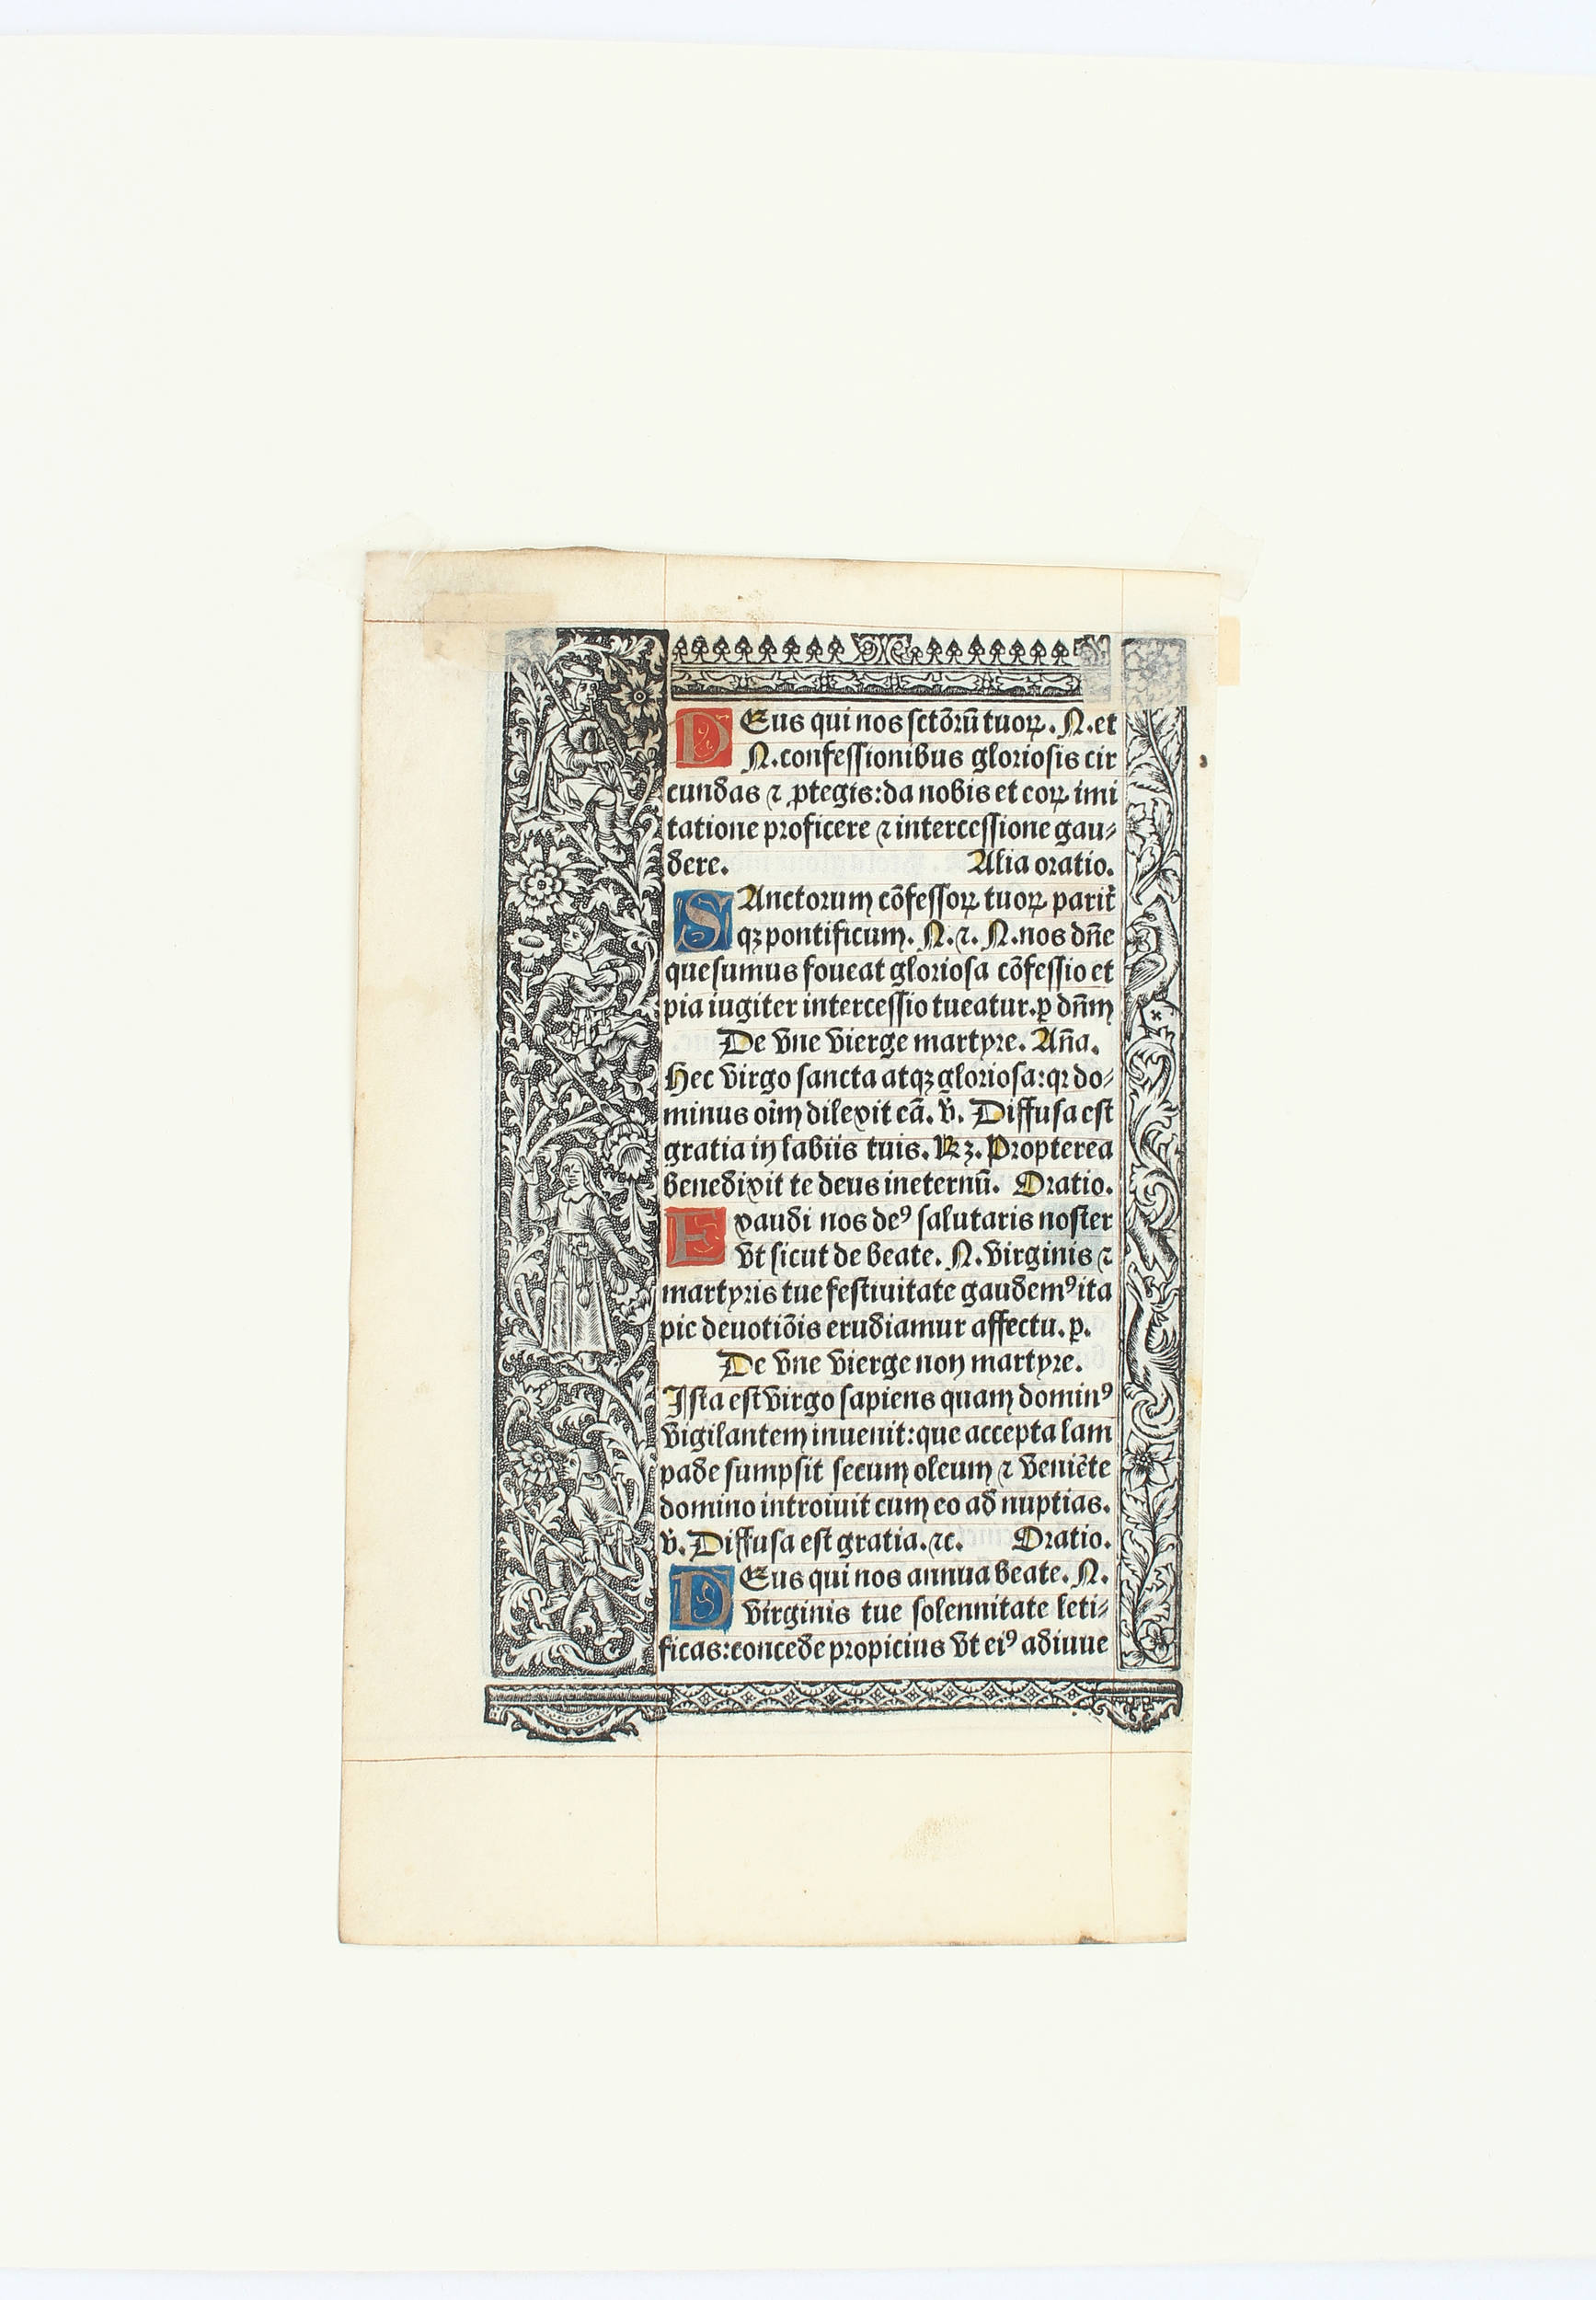 DEus qui nos sctõrũ tuoꝝ. N. et
N. confessionibus gloriosis cir
cundas ⁊ ꝓtegis: da nobis et eoꝝ imi
tatione proficere ⁊ intercessione gau⸗
dere. Alia oratio.
SAnctorum cõfessoꝝ tuoꝝ parit̃
qꝫ pontificum. N. ⁊. N. nos dñe
quesumus foueat gloriosa cõfessio et
pia iugiter intercessio tueatur. ꝑ dñm
De vne vierge martyre. Añа.
Hec virgo sancta atqꝫ gloriosa: qꝛ do⸗
minus oĩm dilexit eã. ṽ. Diffusa est
gratia in labiis tuis. Rꝫ. Propterea
benedixit te deus in eternũ. Oratio.
Exaudi nos deꝰ salutaris noster
vt sicut de beate. N. virginis ⁊
martyris tue festiuitate gaudemꝰ ita
pie deuotiõis erudiamur affectu. ꝑ.
De vne vierge non martyre.
Ista est virgo sapiens quam dominꝰ
vigilantem inuenit: que accepta lam
pade sumpsit secum oleum ⁊ veniẽte
domino introiuit cum eo ad nuptias.
ṽ. Diffusa est gratia. ⁊c. Oratio.
DEus qui nos annua beate. N.
virginis tue solennitate leti⸗
ficas: concede propicius vt eiꝰ adiuue